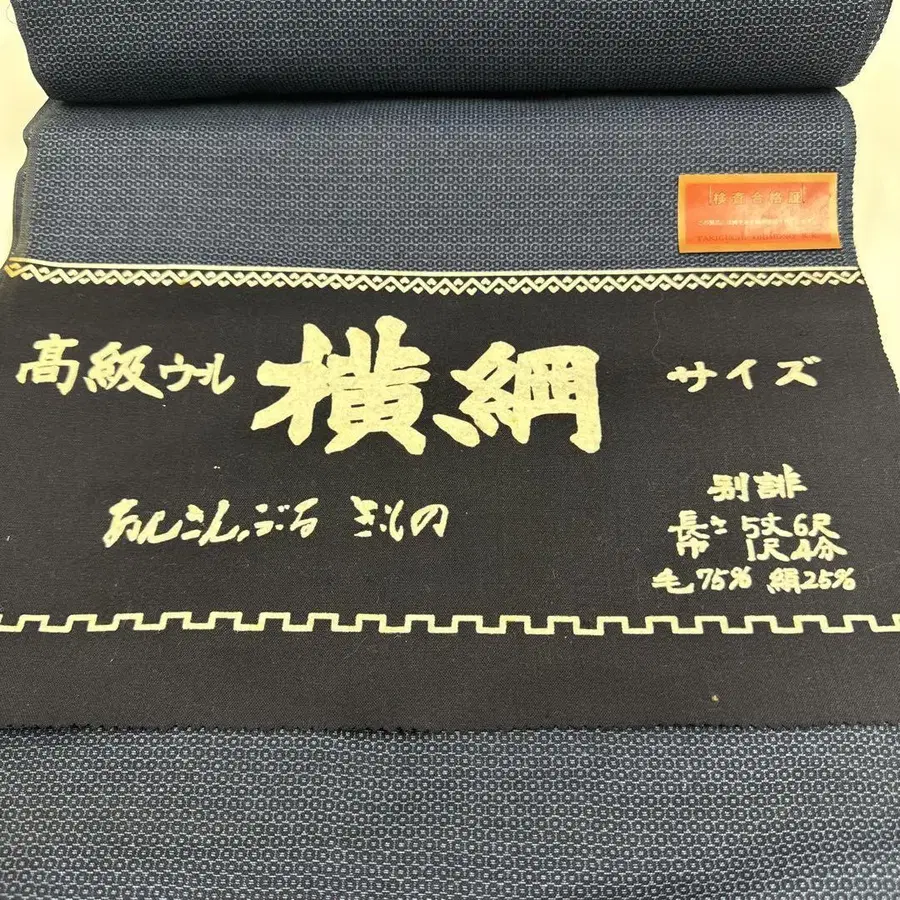 検査合格証
高級ウール 横綱 サイズ
あんさんぶる きもの
別誂
長さ 5丈6尺
巾 1尺4分
毛75% 絹25%